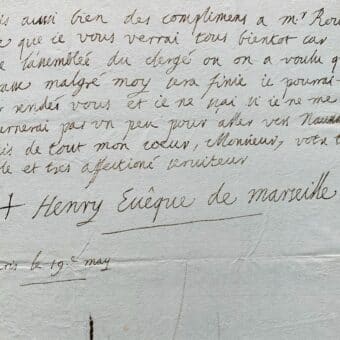 is aussi bien des complimens a mr Rou
e que ie vous verrai tous bientot car
e l'assemblée du clergé on on a voulu q
asse malgré moy sera finie ie pourrai
r rendes vous et ie ne sai si ie ne me
urnerai pas vn peu pour aller vers
is de tout mon coeur, Monsieur, votre t
le et tres affectioné seruiteur
+ Henry Euêque de marseille
ris le 19e may